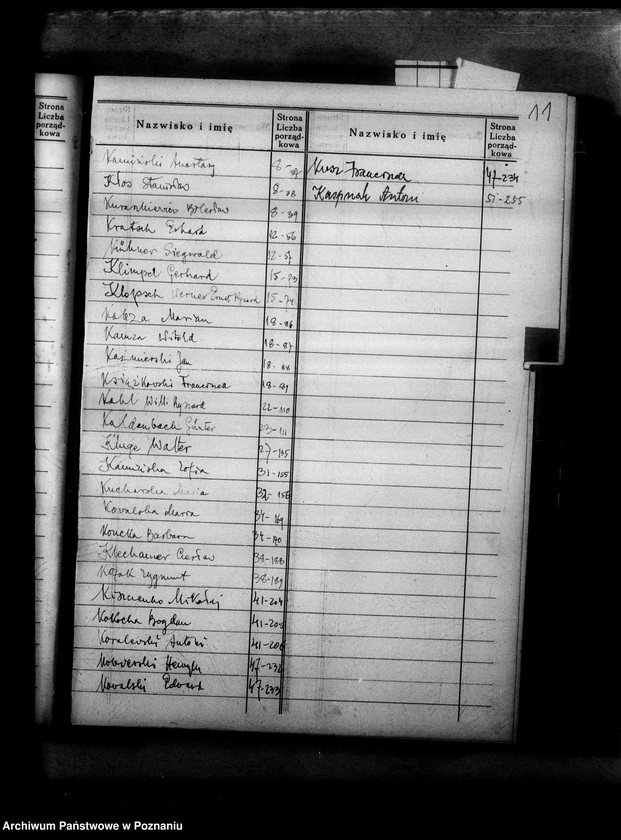 Strona
Liczba
porząd-
kowa
11
Nazwisko i imię
Strona
Liczba
porząd-
kowa
Nazwisko i imię
Strona
Liczba
porząd-
kowa
8-
Kłos Stanisław 8-88
Bolesław 8-89
Kratsch Erhard 12-56
Kühner Siegwald 12-57
Klimpel Gerhard 15-73
Klopsch Werner Ernst Ryszard 15-74
Marian 18-86
Kamza Witold 18-87
Kaźmierski Jan 18-88
Książkowski Franciszek 18-89
Kahl Willi Ryszard 22-110
Kaldenbach Günter 23-111
Kluge Walter 27-135
Kamizińska Zofia 31-155
Kucharska Maria 32-156
Kowalska Maria 34-169
Koncka Barbara 34-170
Klechamer Czesław 38-188
Kozak Zygmunt 38-189
Mikołaj 41-204
Kokocha Bogdan 41-205
Kowalewski Antoni 41-206
Henryk 47-232
Kowalski Edward 47-233
Kusz Franciszek 47-234
Kasprzak Antoni 51-255
Archiwum Państwowe w Poznaniu